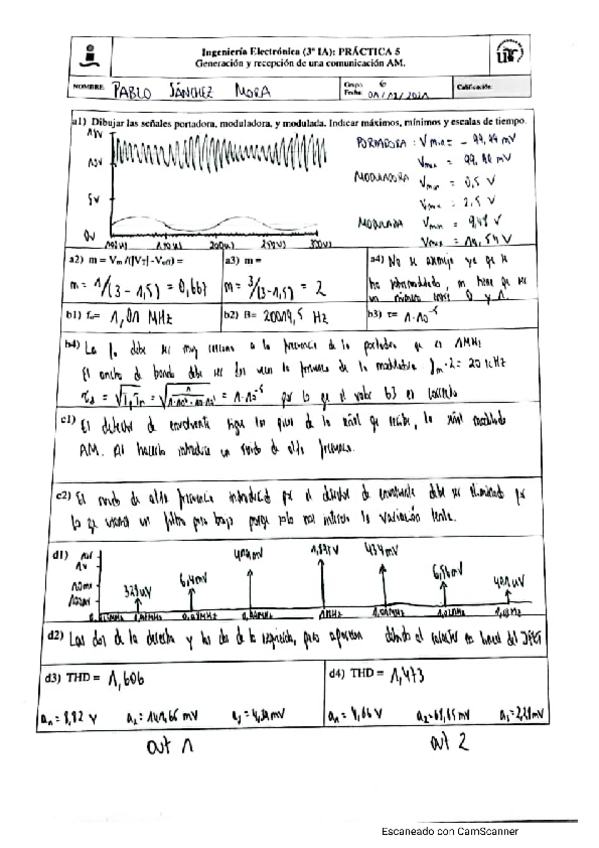 Ingeniería Electrónica (3º IA): PRÁCTICA 5
Generación y recepción de una comunicación AM.
NOMBRE: PABLO SÁNCHEZ MORA
Grupo 6
Fecha: 01/12/2021
Calificación:
a1) Dibujar las señales portadora, moduladora, y modulada. Indicar máximos, mínimos y escalas de tiempo.
PORTADORA: Vmin = - 99,99 mV
Vmax = 99,98 mV
MODULADORA Vmin = 0,5 V
Vmax = 2,5 V
MODULADA Vmin = 9,48 V
Vmax = 10,54 V
10V
5V
0V
200us 250us 300us
a2) m = Vm/(|VT|-Veff) =
m = 1/(3-1,5) = 0,667
a3) m =
m = 3/(3-1,5) = 2
a4) No se ya que se
ha sobremodulado, m tiene que ser
un número entre 0 y 1.
b1) fo= 1,01 MHz
b2) B= 20019,5 Hz
b3) τ= 1·10⁻⁵
b4) La fo debe ser muy cercana a la frecuencia de la portadora que es 1MHz
El ancho de banda debe ser dos veces la frecuencia de la moduladora fm·2 = 20 kHz
por lo que el valor b3 es correcto
c1) El detector de envolvente sigue los picos de la señal que recibe, la señal modulada
AM. Al hacerlo introduce un ruido de alta frecuencia.
c2) El ruido de alta frecuencia introducido por el detector de envolvente debe ser eliminado por
lo que usamos un filtro paso bajo porque solo nos interesa la variación lenta.
d1)
329uV 6,4mV 1,895V 434mV 6,56mV 401uV
1MHz
d2) Las dos de la derecha y las dos de la izquierda, pues aparecen debido al carácter no lineal del JFET
d3) THD = 1,606
d4) THD = 1,473
a₁ = 8,82 V a₂ = 141,66 mV a₃ = 4,34mV
a₁ = 4,66 V a₂=68,65 mV a₃=2,28mV
out 1 out 2
Escaneado con CamScanner